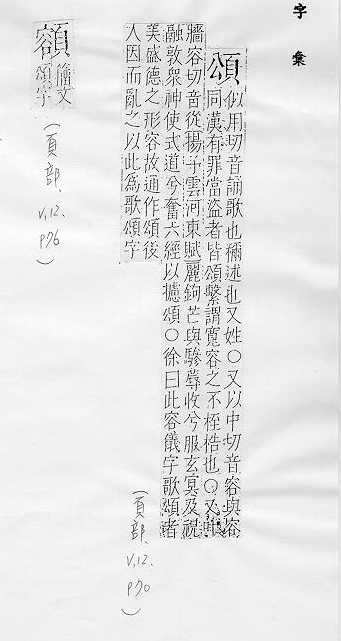 字彙
頌 似用切音誦歌也稱述也又姓○又以中切音容與容
同漢有罪當盜者皆頌繫謂寬容之不桎梏也○又
牆容切音從揚子雲河東賦麗鉤芒與驂蓐收兮服玄冥及祝
融敦衆神使式道兮奮六經以攄頌○徐曰此容儀字歌頌者
美盛德之形容故通作頌後
人因而亂之以此為歌頌字
(頁部、v.12、p70)
額 籒文
頌字
(頁部、v.12、p76)